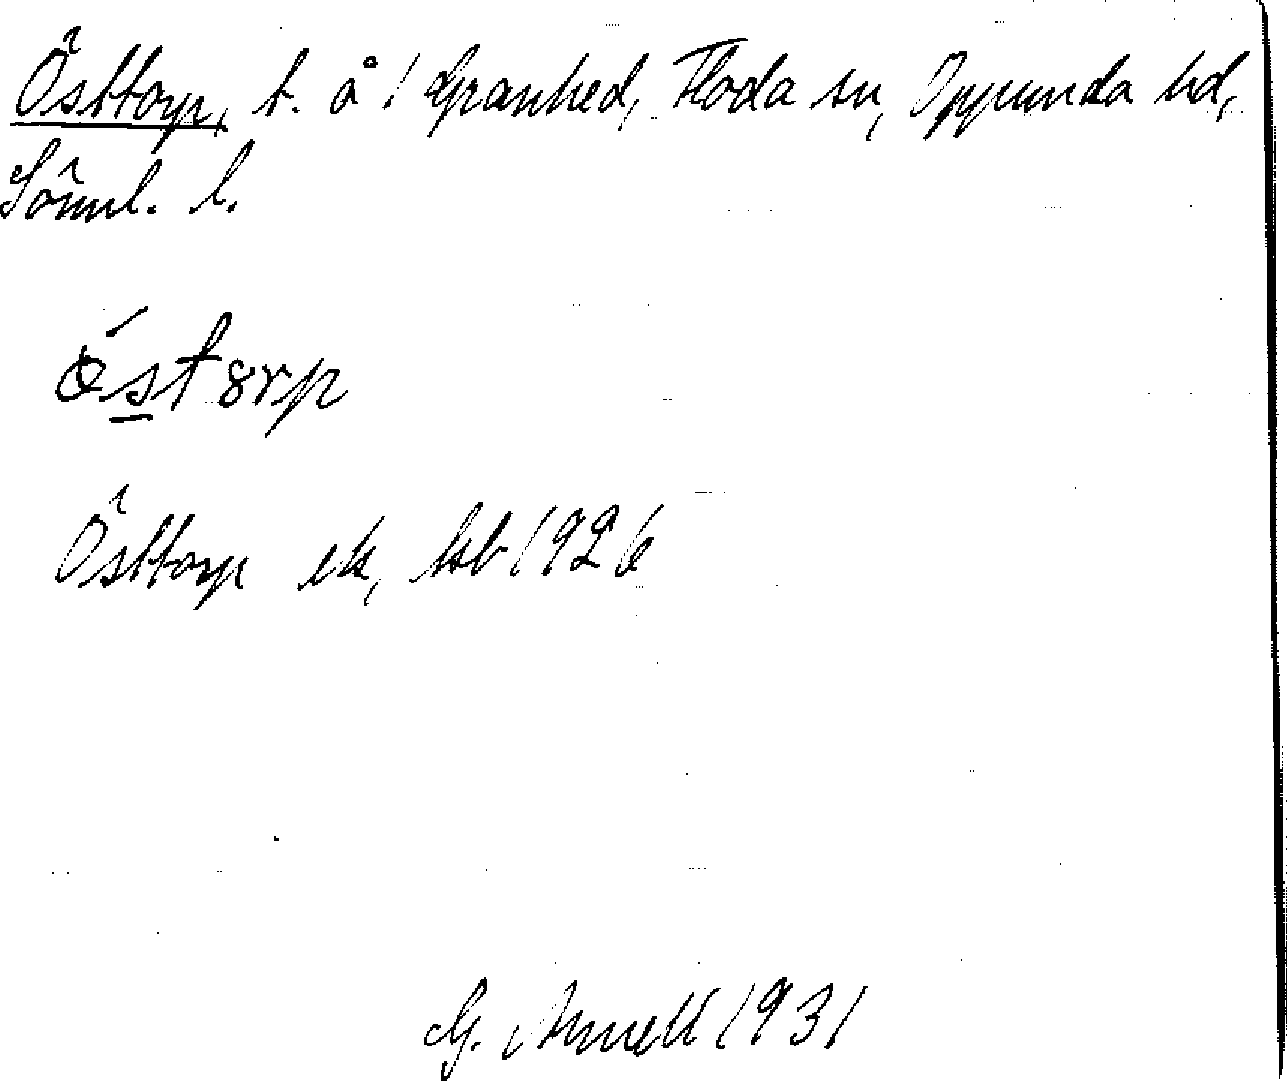 Östtorp, t. å 1 Granhed, Floda sn, Oppunda hd,
Söml. l.
Östtorp ek, hsb 1926
G. Arnell 1931